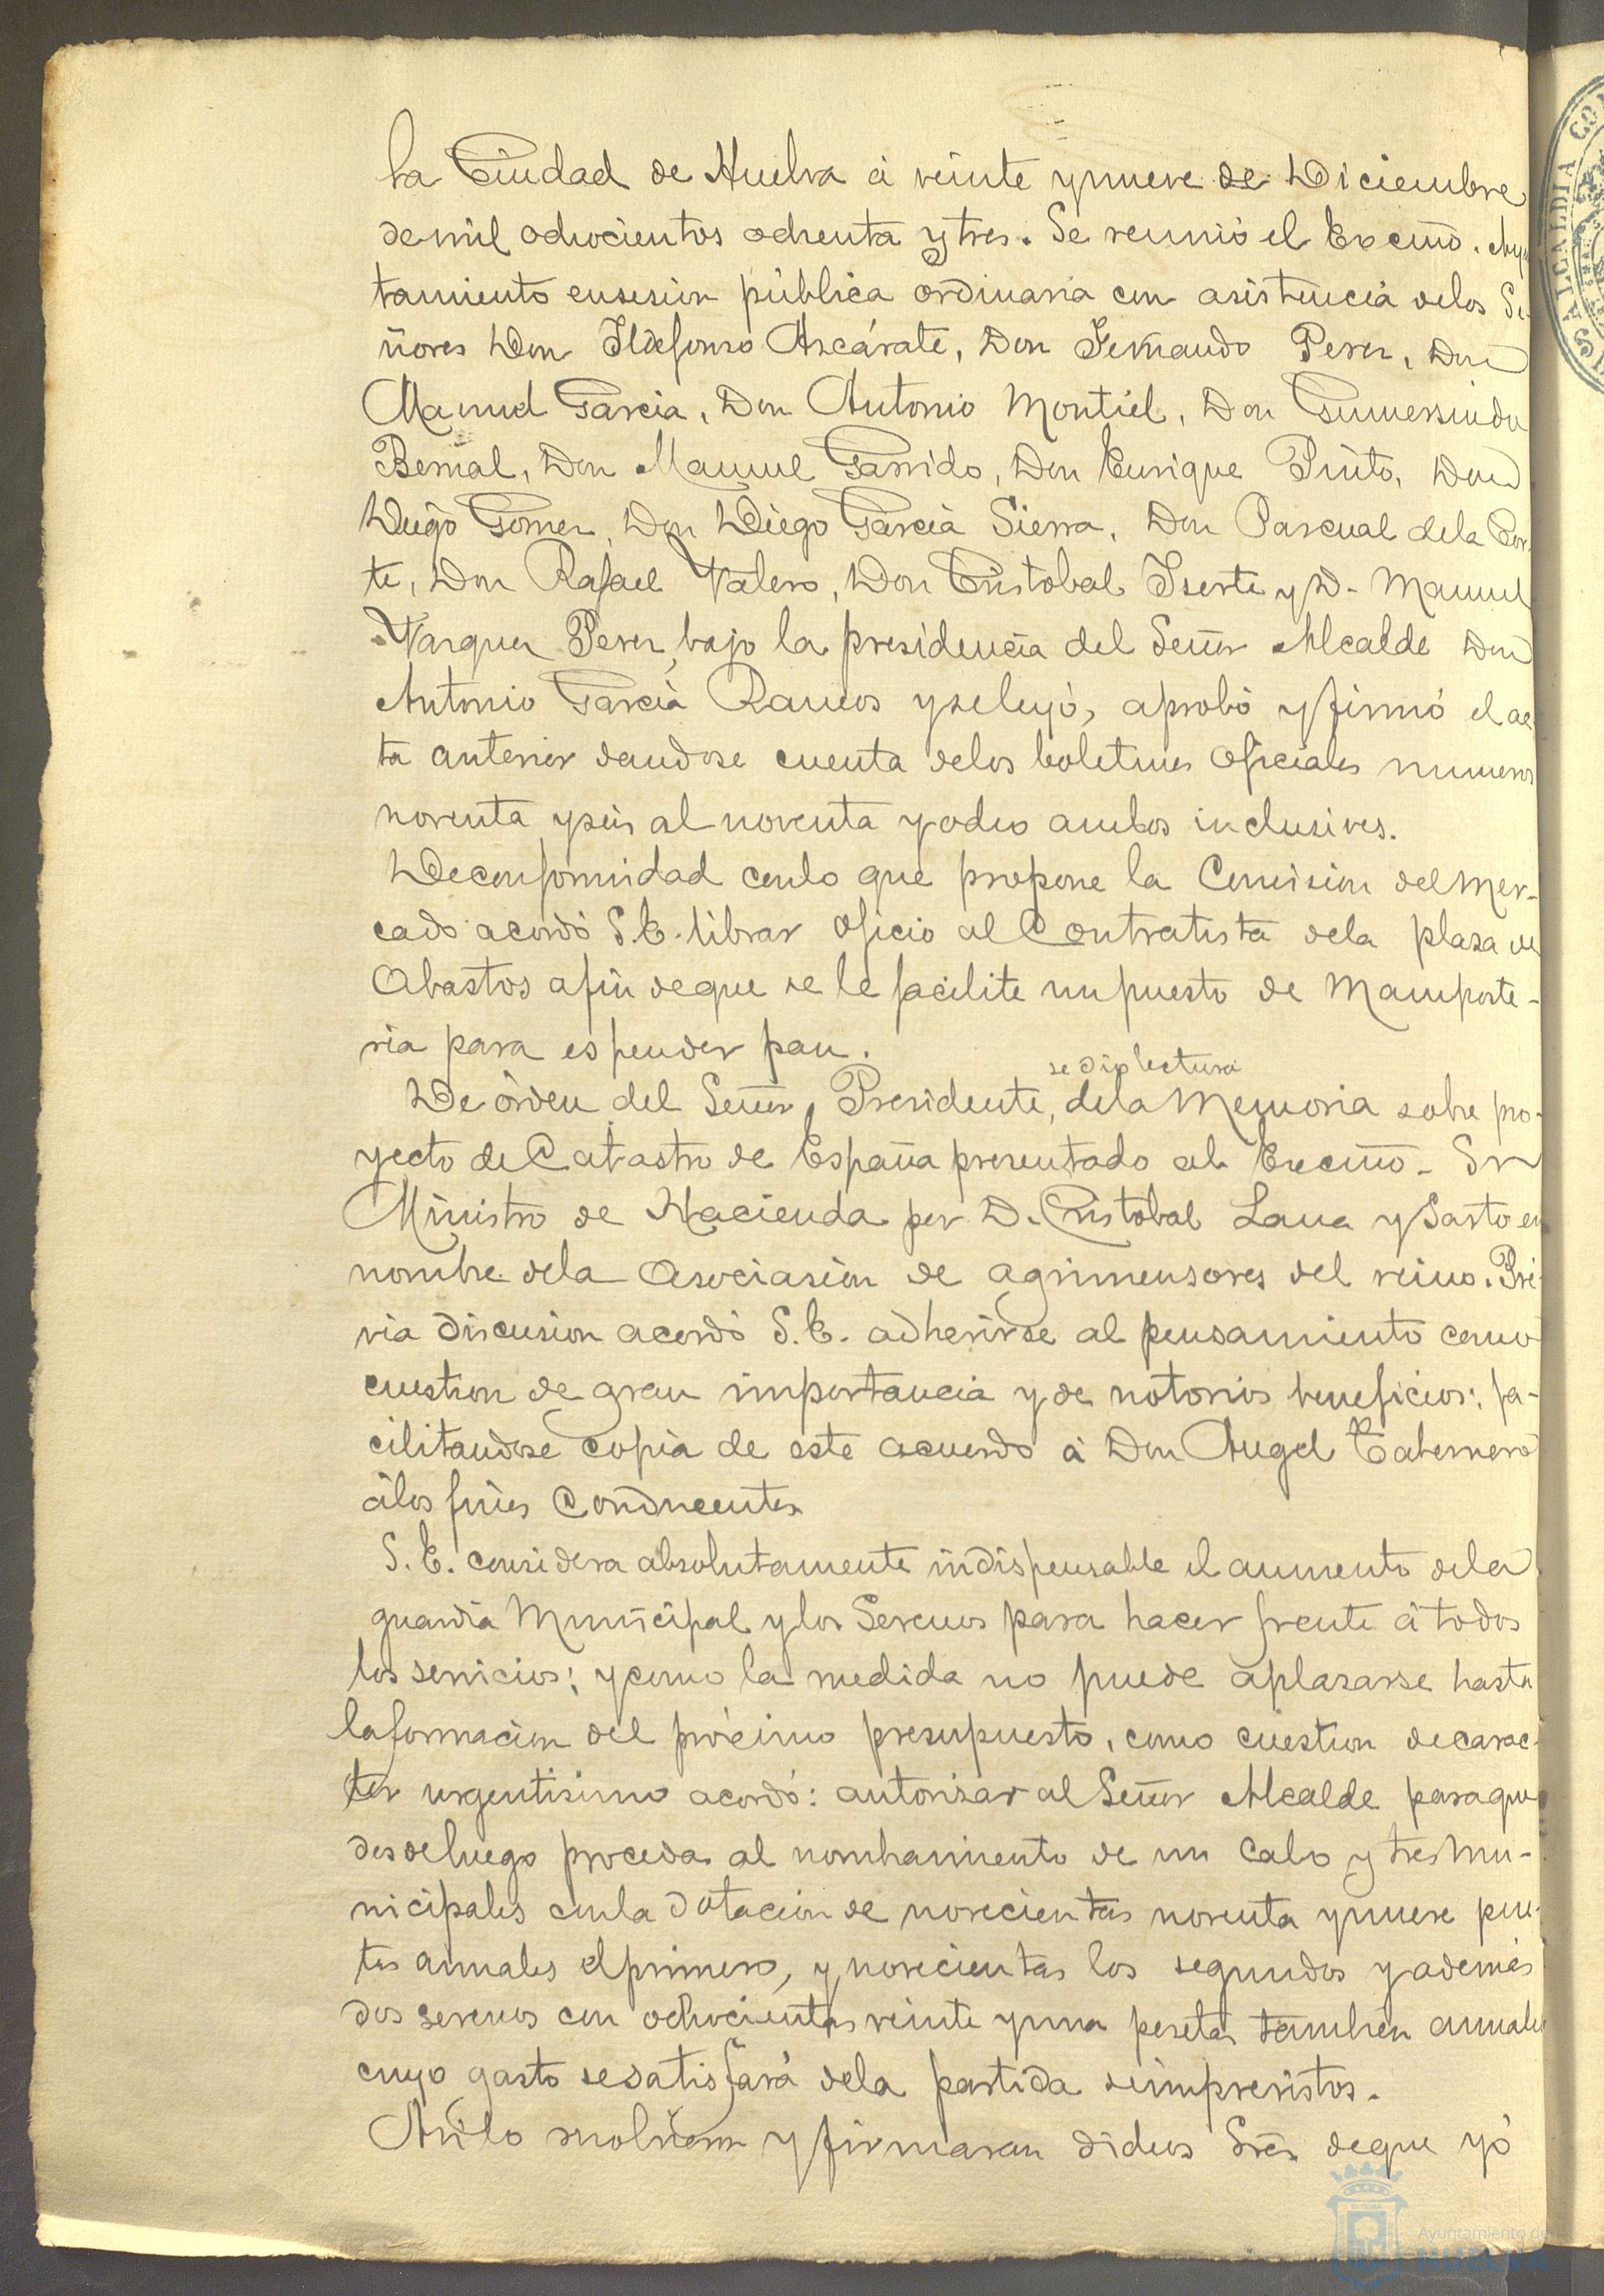 La Ciudad de Huelva á veinte y nueve de Diciembre
de mil ochocientos ochenta y tres. Se reunió el Excmo. Ayun
tamiento en sesion pública ordinaria con asistencia de los Se-
ñores Don Ildefonso Azcárate, Don Fernando Perez, Don
Manuel Garcia, Don Antonio Montiel, Don Gumersindo
Bernal, Don Manuel Garrido, Don Enrique Pinto, Don
Diego Gomez, Don Diego Garcia Sierra, Don Pascual de la Cor-
te, Don Rafael Valero, Don Cristobal Iserte y D. Manuel
Vazquez Perez, bajo la presidencia del Señor Alcalde Don
Antonio Garcia Ramos y se leyó, aprobó y firmó el ac
ta anterior dandose cuenta de los boletines oficiales numeros
noventa y seis al noventa y ocho ambos inclusives.
De conformidad con lo que propone la Comision del Mer-
cado acordó S.E. librar oficio al Contratista de la plaza de
Abastos a fin de que se le facilite un puesto de Mamposte-
ria para espender pan.
se dio lectura
De órden del Señor Presidente, de la Memoria sobre pro-
yecto de Catastro de España presentado al Excmo. Sr
Ministro de Hacienda por D. Cristobal Lana y Sarto en
nombre de la Asociasion de agrimensores del reino. Pré-
via discusion acordó S.E. adherirse al pensamiento como
cuestion de gran importancia y de notorios beneficios; fa-
cilitandose copia de este acuerdo á Don Angel Tabernero
á los fines Conducentes.
S.E. considera absolutamente indispensable el aumento de la
guardia Municipal y los Serenos para hacer frente á todos
los servicios; y como la medida no puede aplazarse hasta
la formacion del próximo presupuesto, como cuestion de carac-
ter urgentisimo acordó: autorizar al Señor Alcalde para que
desde luego proceda al nombramiento de un Cabo y tres Mu-
nicipales con la dotacion de novecientas noventa y nueve pese-
tas anuales el primero, y novecientas los segundos y además
dos serenos con ochocientas veinte y una pesetas tambien anuales
cuyo gasto se satisfará de la partida de imprevistos.
Asi lo resolvieron y firmaran dichos Sres. de que yó
ALCALDIA CON
Ayuntamiento de
HUELVA